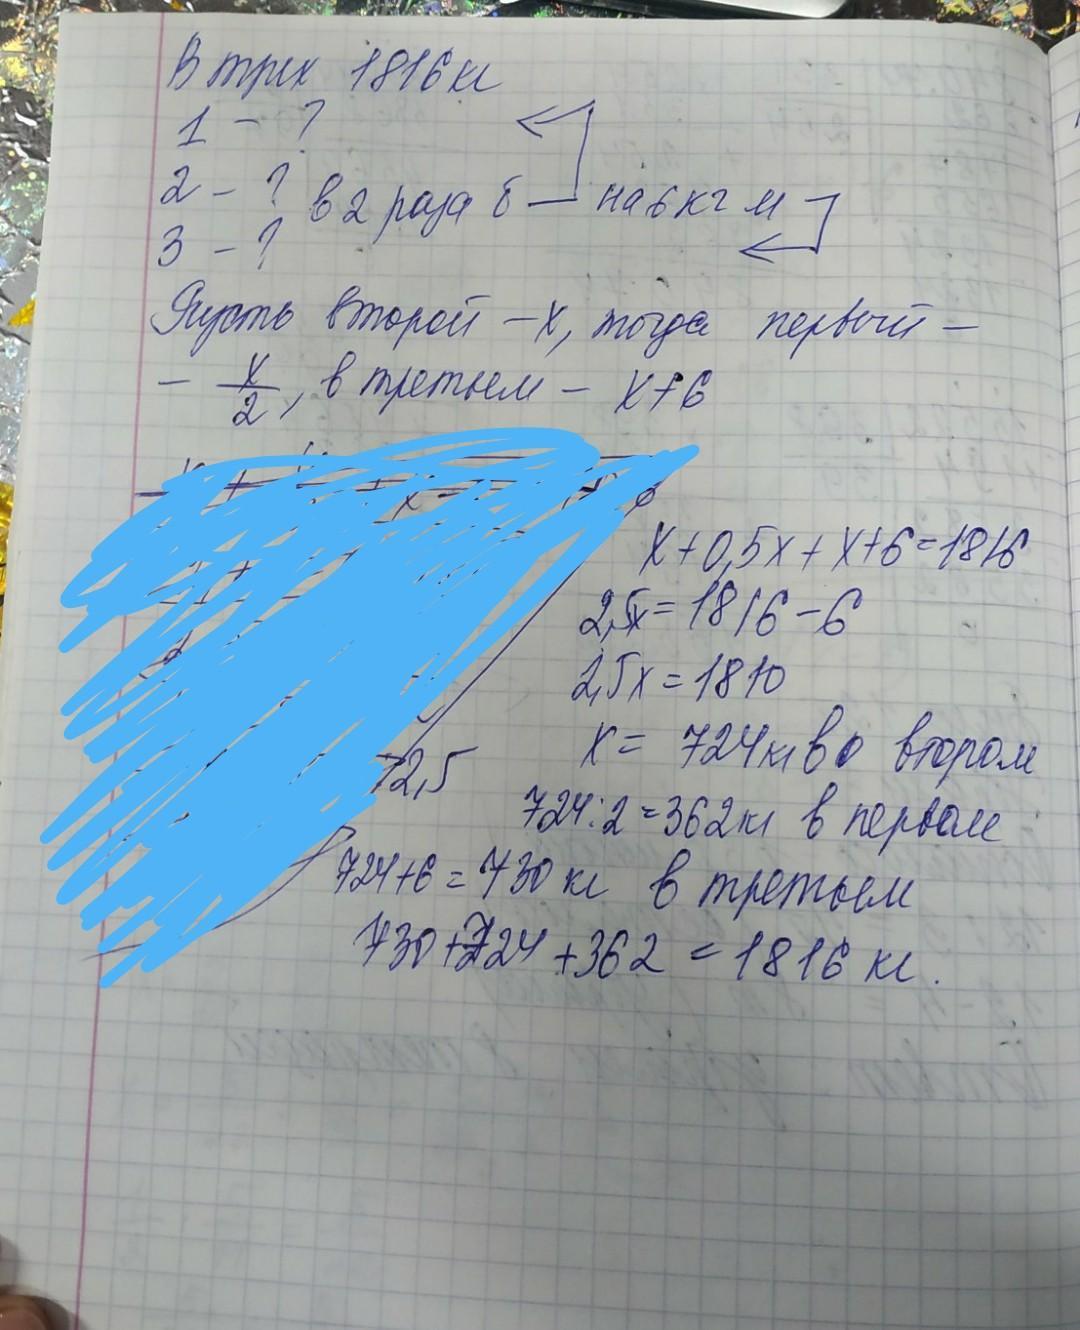 В трех 1816 кг
1 - ?
2 - ? в 2 раза б на 6 кг м
3 - ?
Пусть второй - х, тогда первый -
- х/2, в третьем - х+6
х+0,5х+х+6=1816
2,5х=1816-6
2,5х=1810
2,5
х= 724кг во втором
724:2=362кг в первом
724+6=730 кг в третьем
730+724+362=1816 кг.